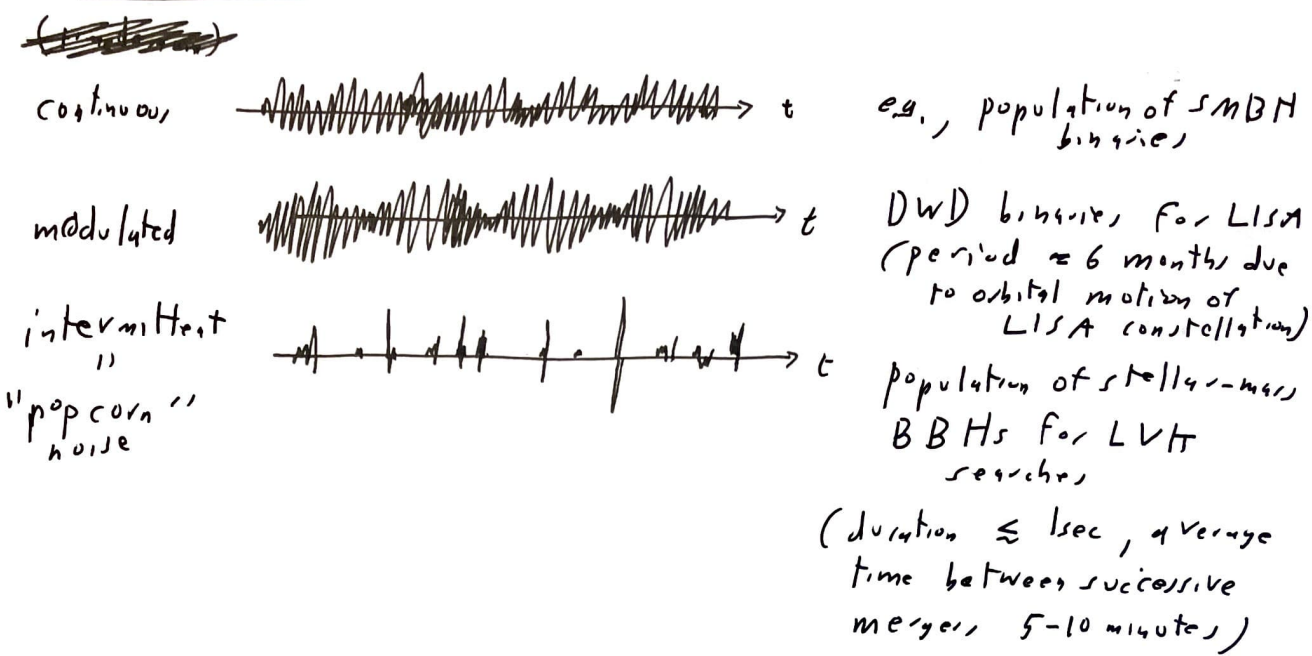 continuous
t
e.g., population of SMBH
binaries
modulated
t
DWD binaries for LISA
(period ≈ 6 months due
to orbital motion of
LISA constellation)
intermittent
"
"popcorn"
noise
t
population of stellar-mass
BBHs for LVK
searches
(duration ≲ 1sec, average
time between successive
mergers 5-10 minutes)